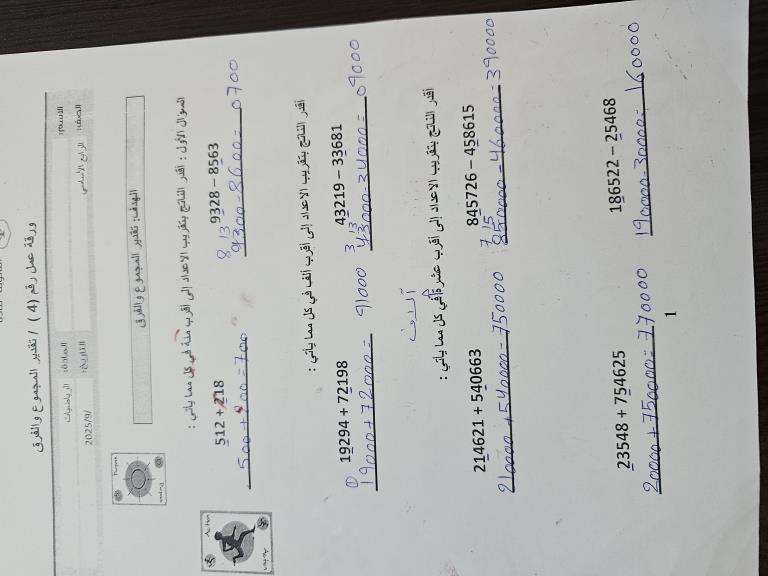 ورقة عمل رقم ( 4 ) / تقدير المجموع والفرق
الاسم: المادة: الرياضيات
الصف: الرابع الأساسي التاريخ: 2025/9/
الهدف: تقدير المجموع والفرق
السؤال الأول : أقدر الناتج بتقريب الاعداد إلى أقرب مئة في كل مما يأتي :
512 + 218 9328 – 8563
500 + 200 = 700 8 13 9300 - 8600 = 0700
أقدر الناتج بتقريب الاعداد إلى أقرب ألف في كل مما يأتي :
19294 + 72198 43219 – 33681
1 19000 + 72000 = 91000 3 13 43000 - 34000 = 09000
آلاف
أقدر الناتج بتقريب الاعداد إلى أقرب عشرة في كل مما يأتي :
214621 + 540663 845726 – 458615
210000 + 540000 = 750000 7 15 850000 - 460000 = 390000
23548 + 754625 186522 – 25468
20000 + 750000 = 770000 190000 - 30000 = 160000
1